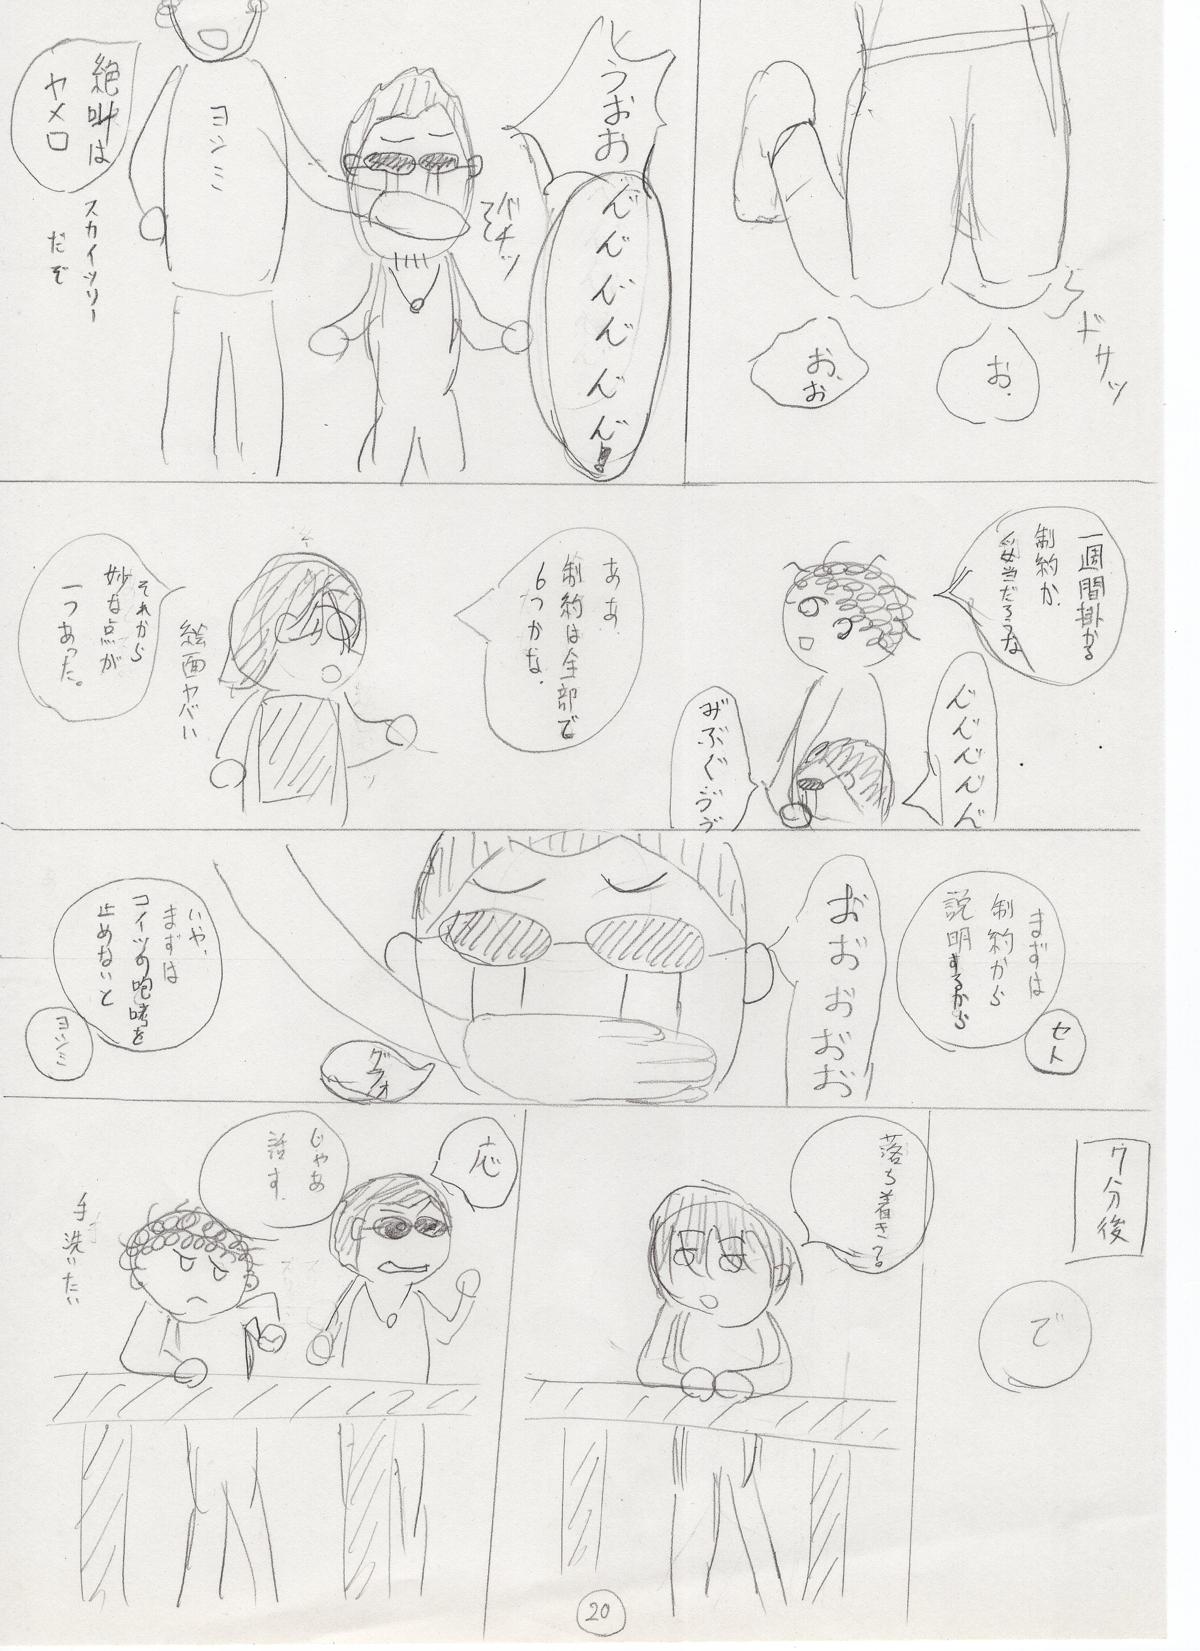 ドサッ
お.
お、
お
うおお
ん゛ん゛ん゛ん゛ん゛ん゛!
バチッ
ヨンミ
絶叫は
ヤメロ
スカイツリー
だぞ
一週間掛かる
制約か.
妥当だろうな
ん゛ん゛ん゛ん゛ん゛
み゛ぶぐゔゔ
ああ.
制約は全部で
6つかな.
絵面ヤバい
それから
妙な点が
一つあった。
まずは
制約から
説明するから
セト
おおおおお
グラオ
いや、
まずは
コイツの咆哮を
止めないと
ヨンミ
7分後
で
落ち着き?
応
じゃあ
話す.
手洗いたい
20